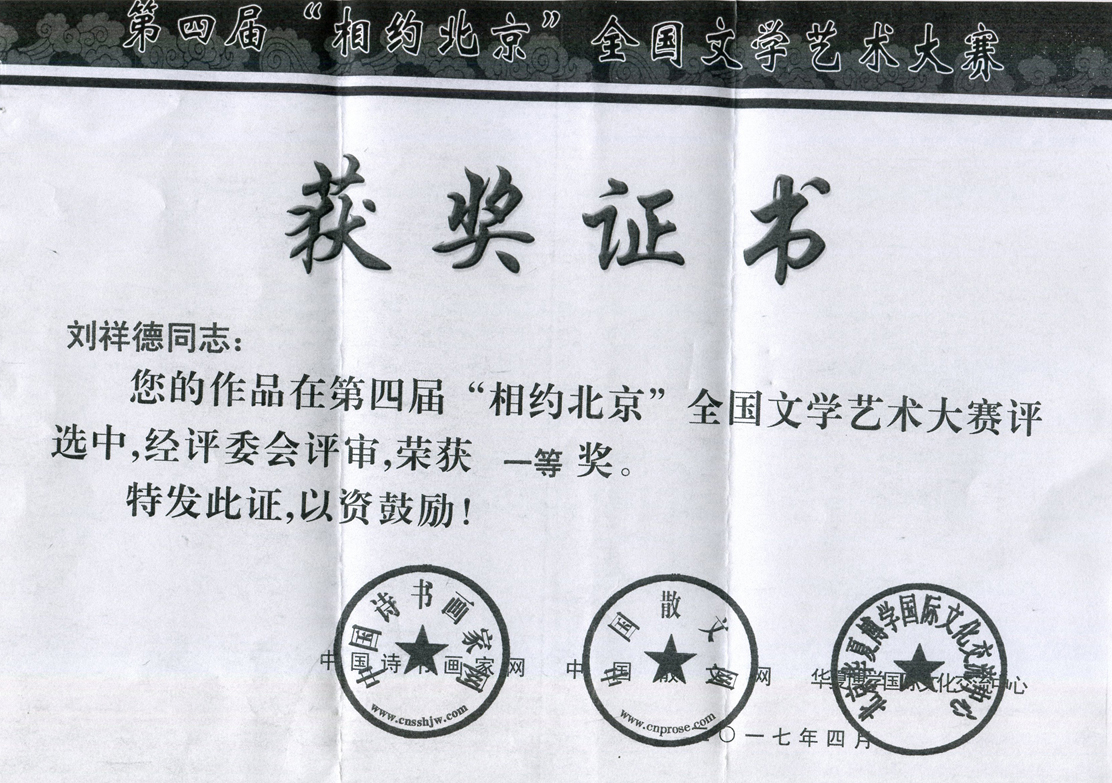 第四届“相约北京”全国文学艺术大赛
获奖证书
刘祥德同志：
您的作品在第四届“相约北京”全国文学艺术大赛评
选中,经评委会评审,荣获 一等 奖。
特发此证,以资鼓励!
中国诗书画家网
www.cnsshjw.com
中国散文网
www.cnprose.com
北京华夏博学国际文化交流中心
中国诗书画家网 中国散文网 华夏博学国际文化交流中心
二〇一七年四月